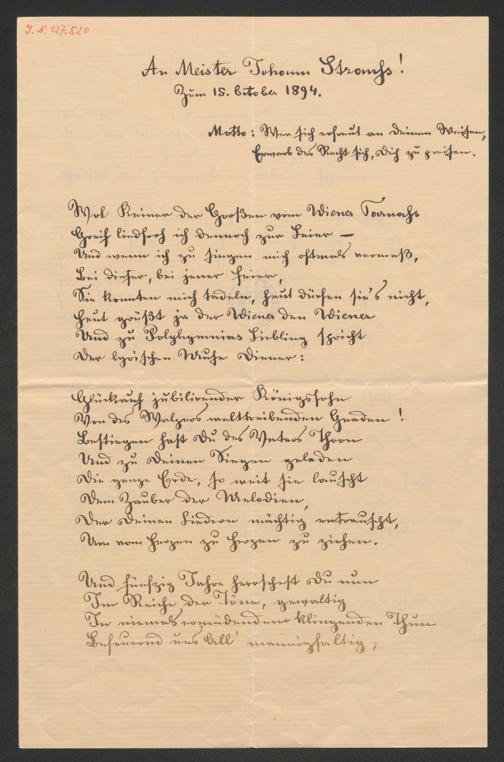 J. N. 127.520
An Meister Johann Strauß!
Zum 15. October 1894.
Motto: Wer sich erfreut an Deinen Weisen,
Erwarb das Recht sich, Dich zu preisen.
Wol Keiner der Großen vom Wiener Parnaß
Greif liedfroh ich dennoch zur Leier —
Und wenn ich zu singen mich oftmals vermaß,
Bei dieser, bei jener Feier,
Sie konnten mich tadeln, heut dürfen sie's nicht,
Heut grüßt ja der Wiener den Wiener
Und zu Polyhymnias Liebling spricht
Der lyrischen Muse Diener:
Glückauf jubilirender Königssohn
Von des Walzers weltweibenden Gnaden!
Bestiegen hast Du des Vaters Thron
Und zu Deinen Siegen geladen
Die ganze Erde, so weit sie lauscht
Dem Zauber der Melodien,
Der Deinen Liedern mächtig entrauscht,
Um vom Herzen zu Herzen zu ziehen.
Und fünfzig Jahre herrschest Du nun
Im Reiche der Töne, gewaltig
In niemals ermüdendem klingenden Thun
Befeuernd uns All' mannigfaltig;